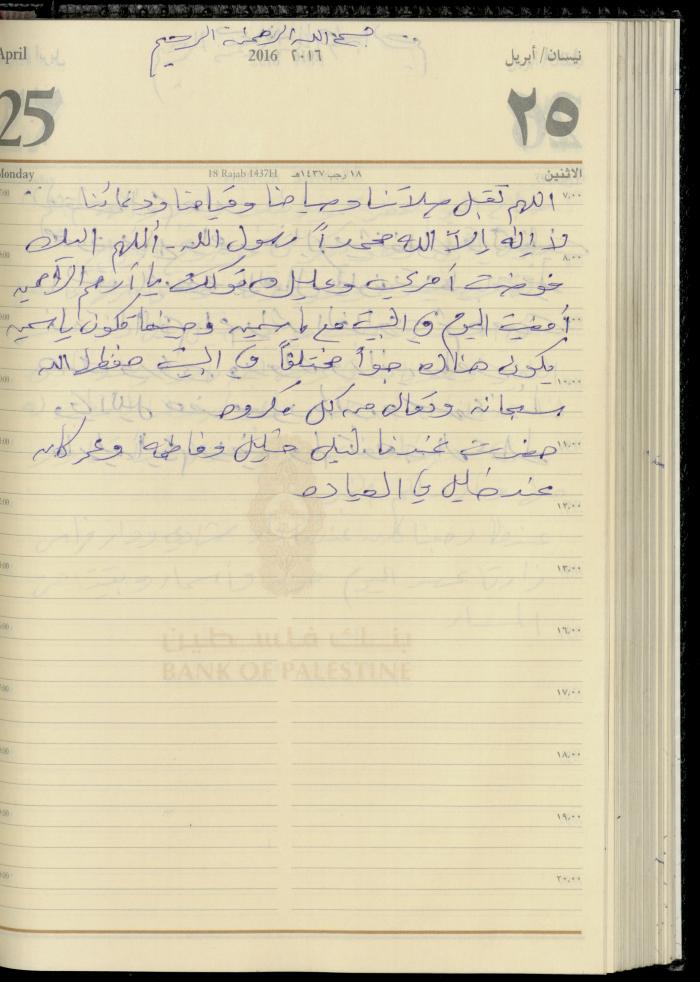 بسم الله الرحمن الرحيم
April
2016 ٢٠١٦
نيسان/أبريل
25
٢٥
Monday
18 Rajab 1437H ١٨ رجب ١٤٣٧هـ
الاثنين
٧,٠٠
اللهم تقبل صلاتنا وصيامنا وقيامنا ودعائنا
لا إله إلا الله محمداً رسول الله - اللهم اليك
٨,٠٠
فوضت أمري وعليك توكلت يا أرحم الراحمين
أمضيت اليوم في البيت مع ياسمين وحينما تكون ياسمين
يكون هناك جواً مختلفاً في البيت حفظها الله
١٠,٠٠
سبحانه وتعالى من كل مكروه
١١,٠٠
حضرت عندنا ليلى خليل وفاطمة وعمر كان
عند خليل في العيادة
١٢,٠٠
١٣,٠٠
١٦,٠٠
بنك فلسطين
BANK OF PALESTINE
١٧,٠٠
١٨,٠٠
١٩,٠٠
٢٠,٠٠